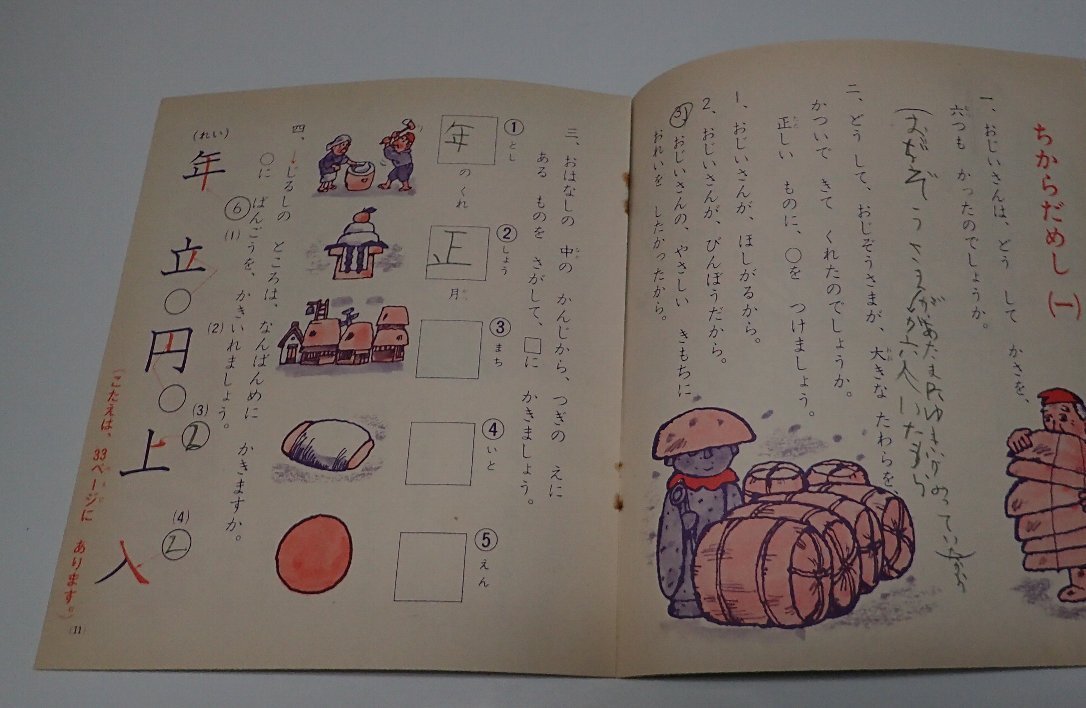 ちからだめし（一）
一、おじいさんは、どう して かさを、
六つも かったのでしょうか。
二、どう して、おじぞうさまが、大きな たわらを、
かついで きて くれたのでしょうか。
正しい ものに、○を つけましょう。
1、おじいさんが、ほしがるから。
2、おじいさんが、びんぼうだから。
3、おじいさんの、やさしい きもちに
おれいを したかったから。
三、おはなしの 中の かんじから、つぎの えに
ある ものを さがして、□に かきましょう。
① とし
年
の くれ
② しょう
正
月
③ まち
④ いと
⑤ えん
四、←じるしの ところは、なんばんめに かきますか。
○に ばんごうを、かきいれましょう。
（れい）
年
6
(1)
立
(2)
円
(3)
2
上
(4)
2
入
（こたえは、33ページに あります。）
(11)